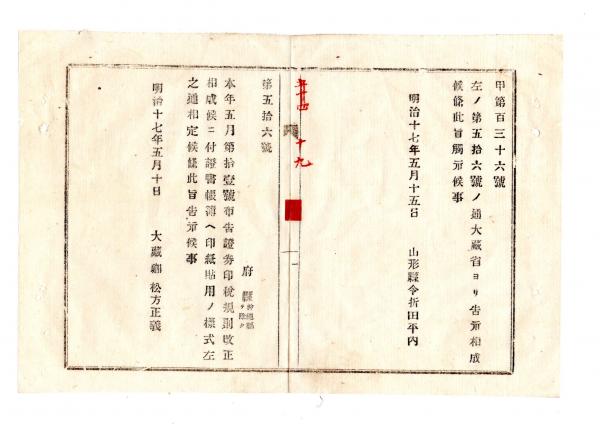 甲第百三十六號
左ノ第五拾六號ノ通大藏省ヨリ告示相成
候條此旨觸示候事
明治十七年五月十五日
山形縣令折田平内
十九
第五拾六號
府
縣
沖繩縣
ヲ除ク
本年五月第拾壹號布告證券印稅規則改正
相成候ニ付證書帳簿ヘ印紙貼用ノ樣式左
之通相定候條此旨告示候事
明治十七年五月十日
大藏卿 松方正義